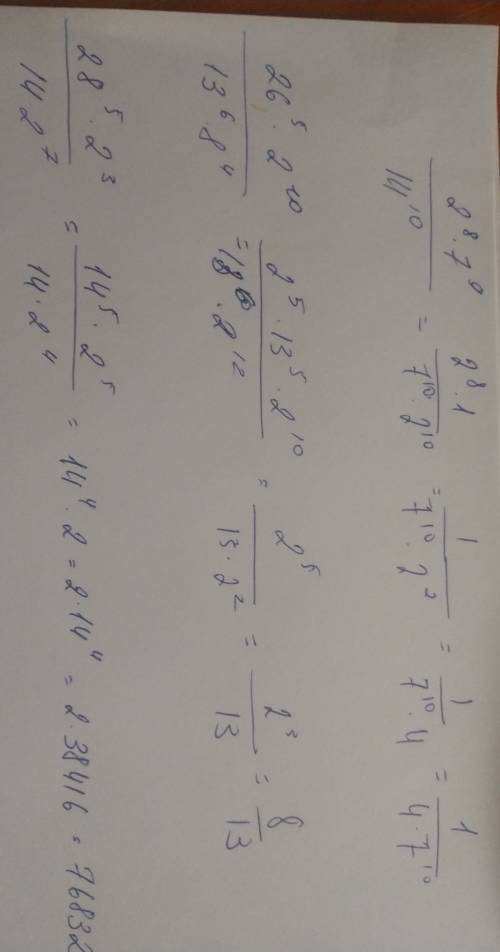 (2^8 · 7^0)/(14^10) = (2^8 · 1)/(7^10 · 2^10) = 1/(7^10 · 2^2) = 1/(7^10 · 4) = 1/(4 · 7^10)
(26^5 · 2^10)/(13^6 · 8^4) = (2^5 · 13^5 · 2^10)/(13^6 · 2^12) = 2^5/(13 · 2^2) = 2^3/13 = 8/13
(28^5 · 2^3)/(14 · 2^7) = (14^5 · 2^5)/(14 · 2^4) = 14^4 · 2 = 2 · 14^4 = 2 · 38416 = 76832